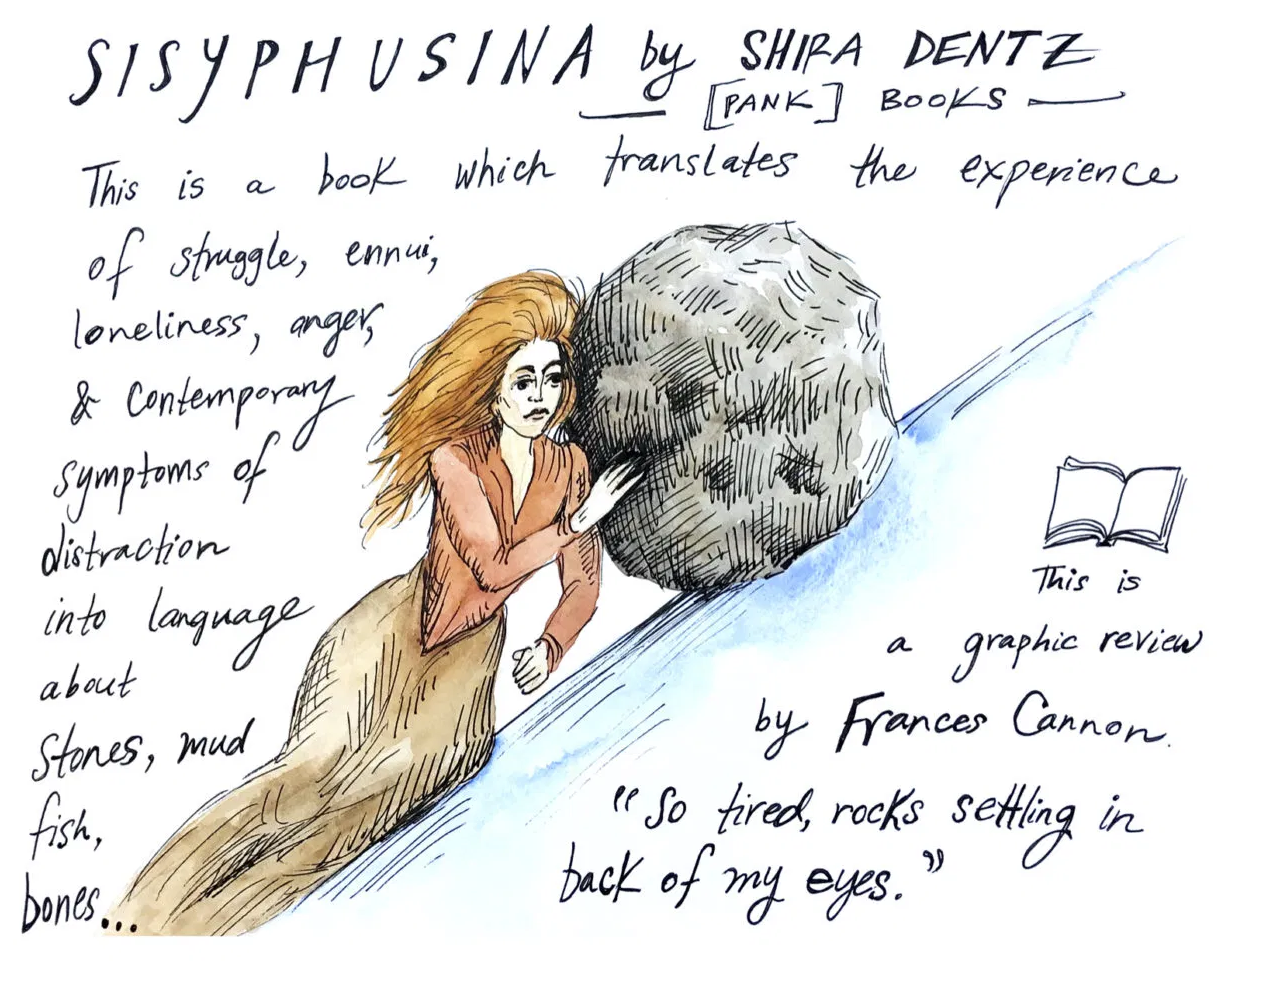 SISYPHUSINA by SHIRA DENTZ
[PANK] BOOKS
This is a book which translates the experience
of struggle, ennui,
loneliness, anger,
& contemporary
symptoms of
distraction
into language
about
stones, mud
fish,
bones...
This is
a graphic review
by Frances Cannon.
"So tired, rocks settling in
back of my eyes."